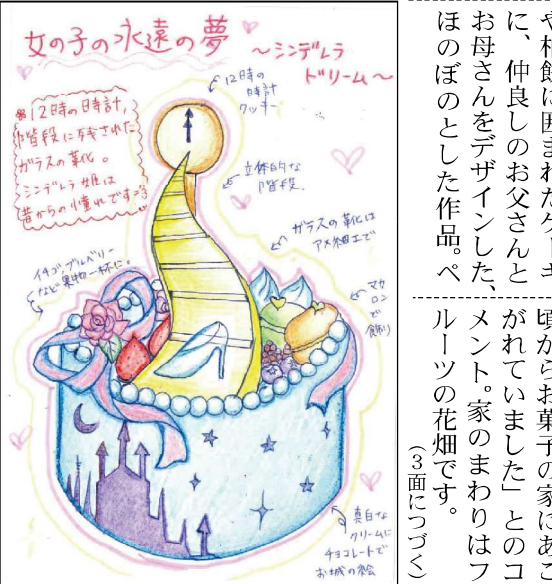 女の子の永遠の夢
～シンデレラ
ドリーム～
12時の
時計
クッキー
※12時の時計,
階段に残された
ガラスの靴。
シンデレラ姫は
昔からの憧れです
立体的な
階段.
ガラスの靴は
アメ細工で
イチゴ,ブルーベリー
など果物一杯に。
マカ
ロン
で
飾り
真白な
クリームに
チョコレートで
お城の絵
に囲まれたケーキ
に、仲良しのお父さんと
お母さんをデザインした、
ほのぼのとした作品。ペ
頃からお菓子の家にあこ
がれていました」とのコ
メント。家のまわりはフ
ルーツの花畑です。
（３面につづく）